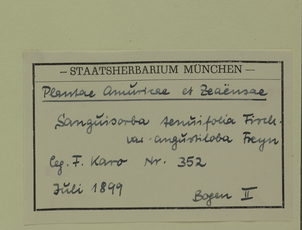 – STAATSHERBARIUM MÜNCHEN –
Plantae Amuricae et Zeaënsae
Sanguisorba tenuifolia Fisch.
var. angustiloba Freyn
leg. F. Karo Nr. 352
Juli 1899
Bogen II